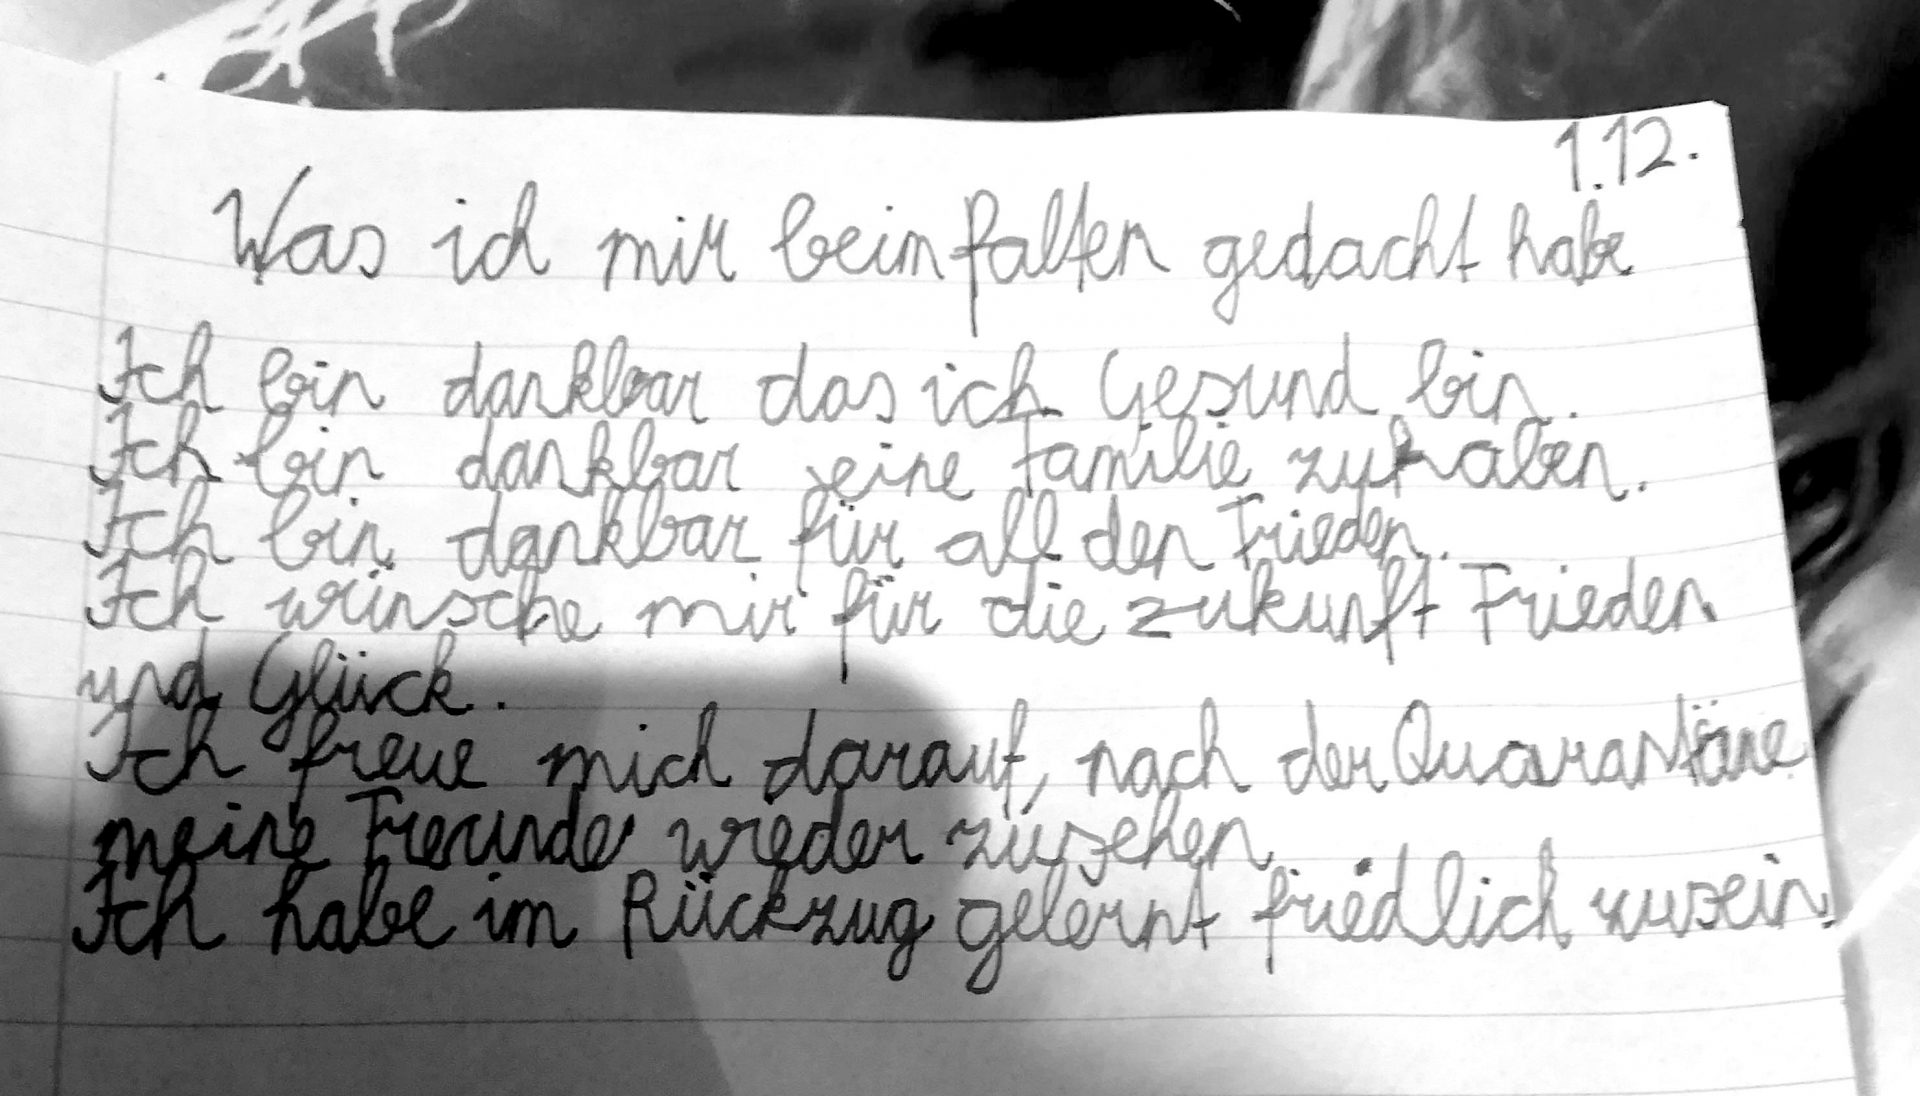 1.12.
Was ich mir beim falten gedacht habe
Ich bin dankbar das ich Gesund bin.
Ich bin dankbar eine Familie zuhaben.
Ich bin dankbar für all den Frieden.
Ich wünsche mir für die zukunft Frieden
und Glück.
Ich freue mich darauf, nach der Quarantäne
meine Freunde wieder zusehen
Ich habe im Rückzug gelernt friedlich zusein.